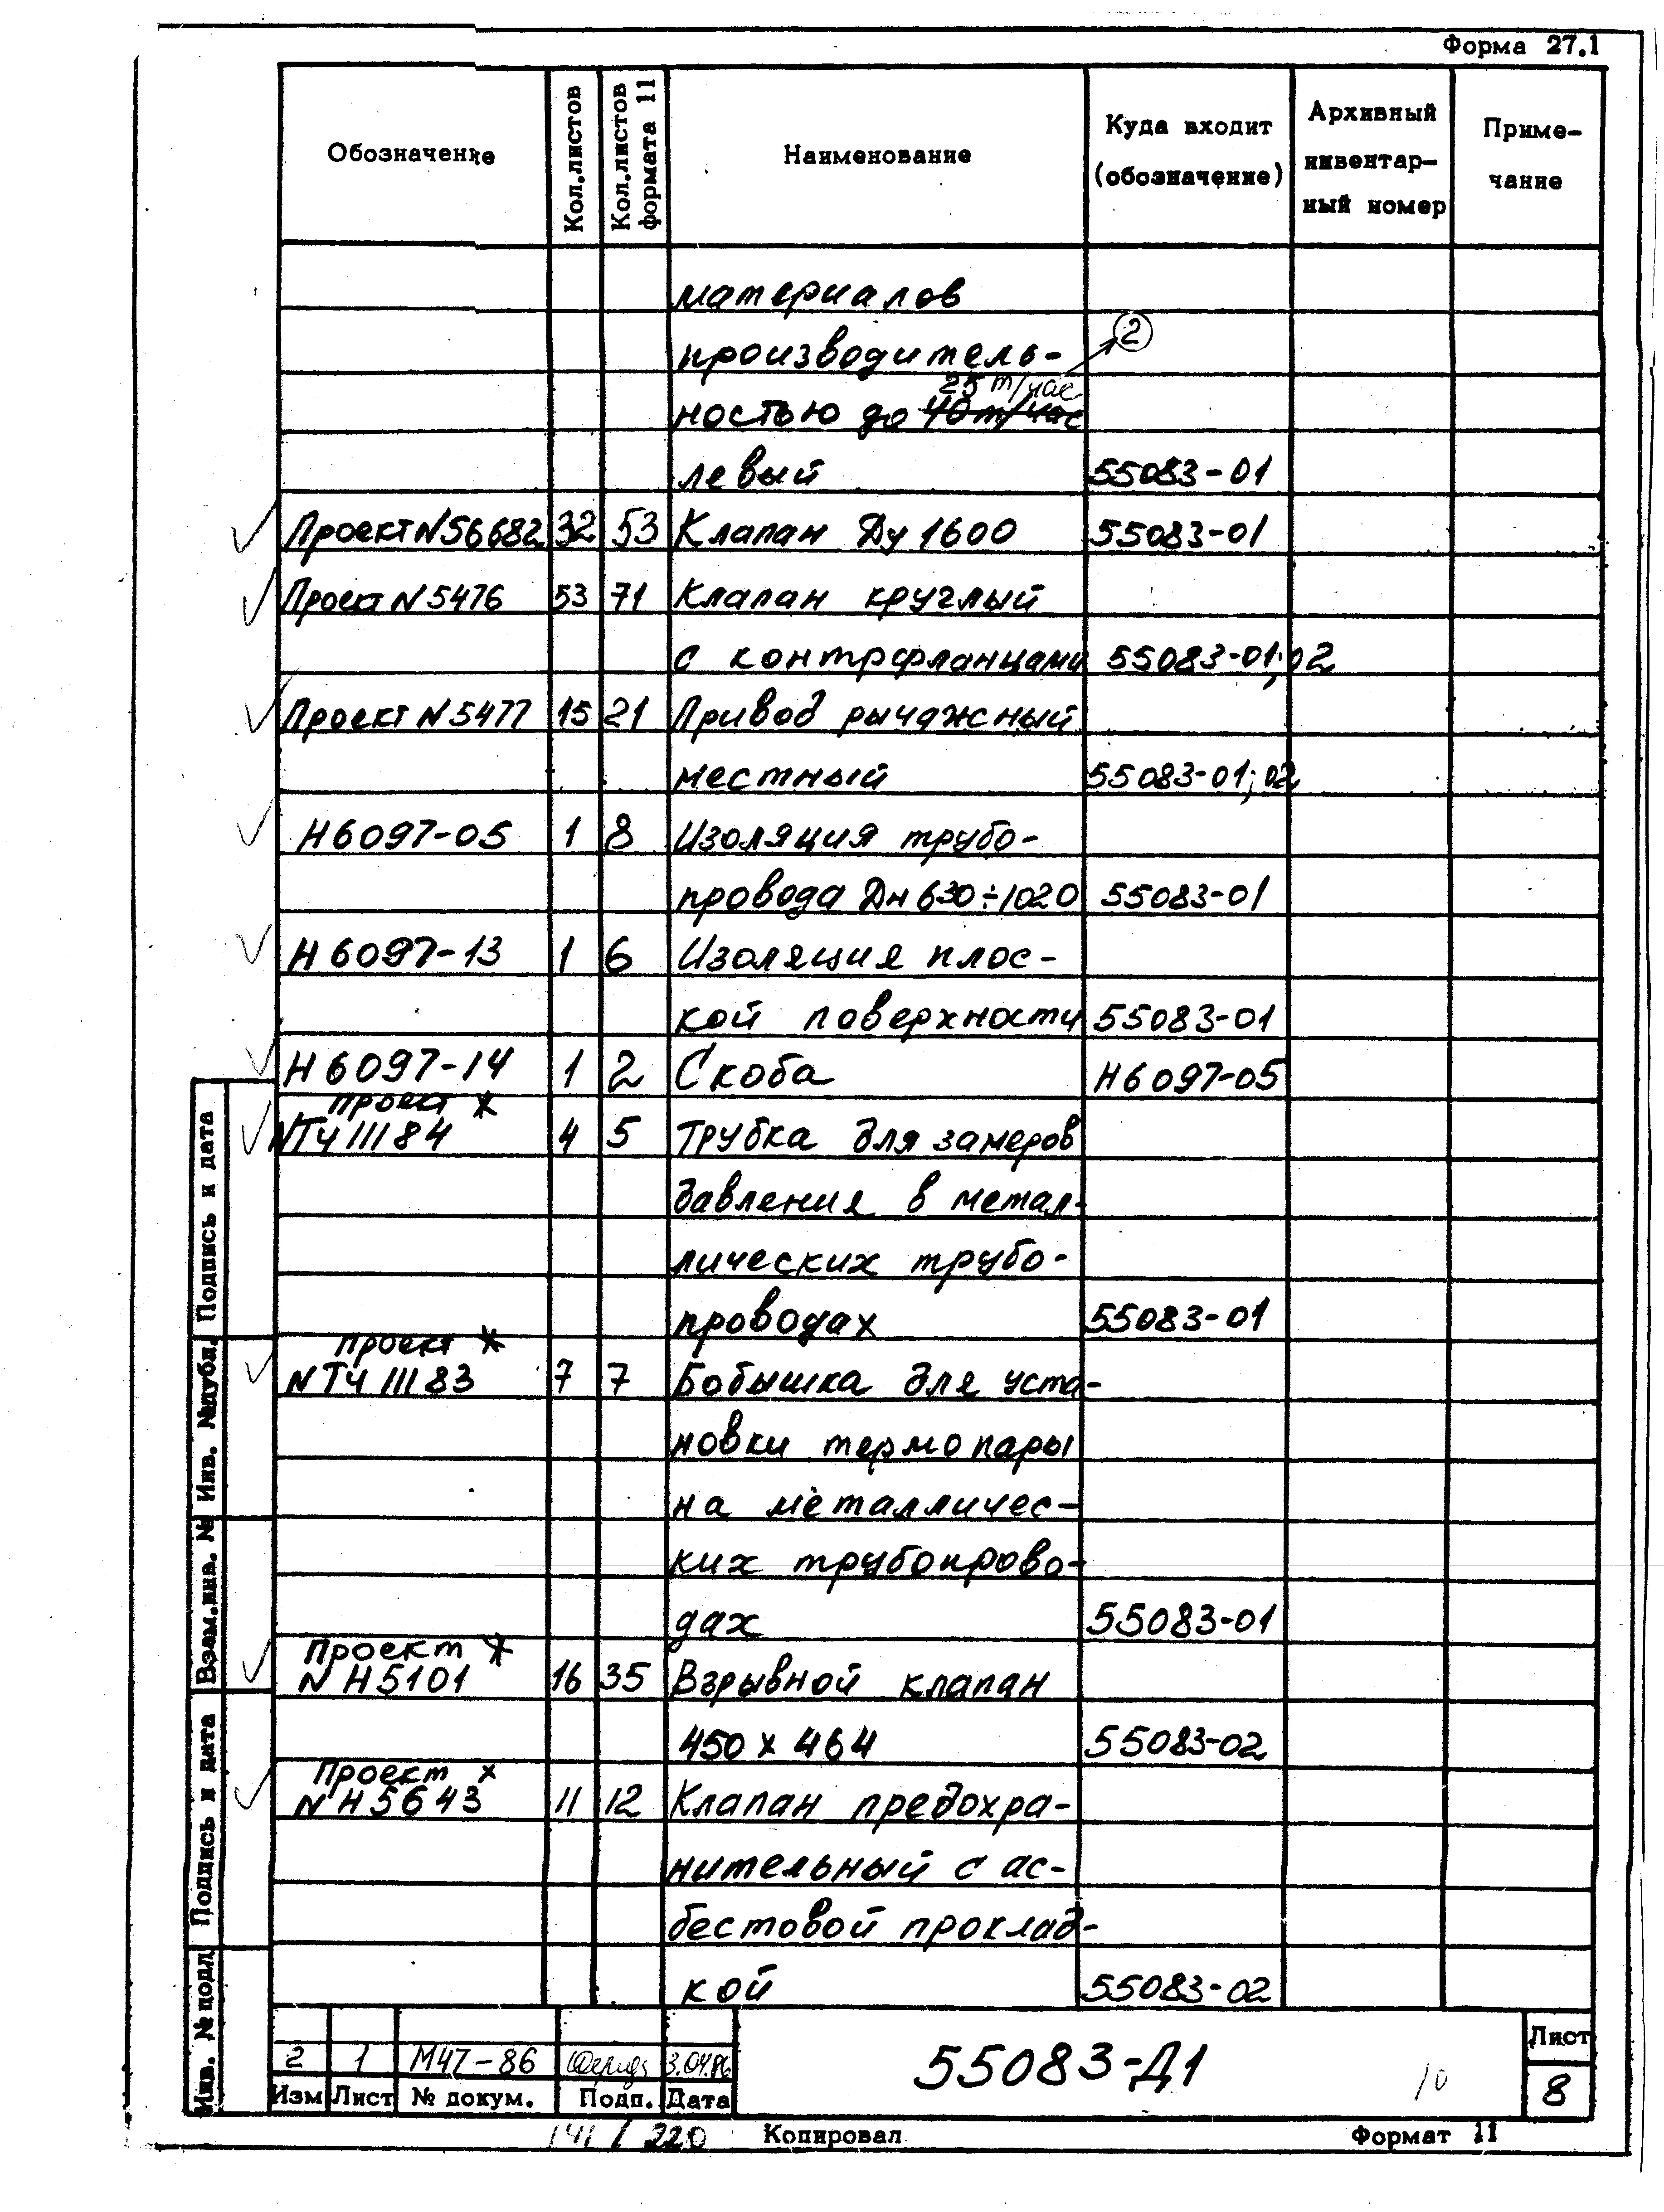 Форма 27.1
Обозначение
Кол.листов
Кол.листов
формата 11
Наименование
Куда входит
(обозначение)
Архивный
инвентар-
ный номер
Приме-
чание
материалов
производитель- 2
25 т/час
ностью до 40т/час
левый 55083-01
Проект N56682 32 53 Клапан Ду 1600 55083-01
Проект N5476 53 71 Клапан круглый
с контрфланцами 55083-01;02
Проект N5477 15 21 Привод рычажный
местный 55083-01;02
Н6097-05 1 8 Изоляция трубо-
провода Дн 630÷1020 55083-01
Н6097-13 1 6 Изоляция плос-
кой поверхности 55083-01
Н6097-14 1 2 Скоба Н6097-05
проект *
NТч III 84 4 5 Трубка для замеров
давления в метал-
лических трубо-
проводах 55083-01
проект *
NТч III 83 7 7 Бобышка для уста-
новки термопары
на металличес-
ких трубопрово-
дах 55083-01
Проект *
N Н5101 16 35 Взрывной клапан
450 х 464 55083-02
Проект х
N Н5643 11 12 Клапан предохра-
нительный с ас-
бестовой проклад-
кой 55083-02
Подпись и дата
Инв. №дубл.
Взам.инв. №
Подпись и дата
Инв. № подл.
2 1 М47-86 3.04.86
Изм Лист № докум. Подп. Дата
55083-Д1
10
Лист
8
141 / 220 Копировал Формат 11